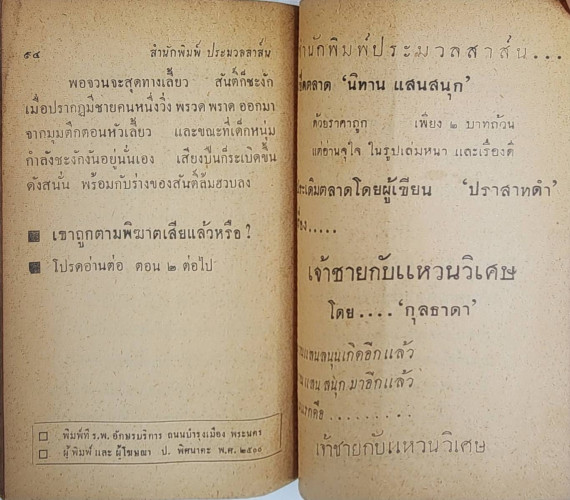 ๕๔ สำนักพิมพ์ ประมวลสาส์น
พอจวนจะสุดทางเลี้ยว สันต์ก็ชะงัก
เมื่อปรากฏมีชายคนหนึ่งวิ่ง พรวด พราด ออกมา
จากมุมตึกตอนหัวเลี้ยว และขณะที่เด็กหนุ่ม
กำลังชะงักงันอยู่นั่นเอง เสียงปืนก็ระเบิดขึ้น
ดังสนั่น พร้อมกับร่างของสันต์ล้มฮวบลง
เขาถูกตามพิฆาตเสียแล้วหรือ ?
โปรดอ่านต่อ ตอน ๒ ต่อไป
พิมพ์ที่ ร.พ. อักษรบริการ ถนนบำรุงเมือง พระนคร
ผู้พิมพ์ และ ผู้โฆษณา ป. พิศนาคะ พ.ศ. ๒๕๐๐
สำนักพิมพ์ประมวลสาส์น...
ตลาด 'นิทาน แสนสนุก'
ด้วยราคาถูก เพียง ๒ บาทถ้วน
แต่อ่านจุใจ ในรูปเล่มหนา และเรื่องดี
ประเดิมตลาดโดยผู้เขียน 'ปราสาทดำ'
.....
เจ้าชายกับแหวนวิเศษ
โดย .... 'กุลธาดา'
แสนสนุกเกิดอีกแล้ว
แสนสนุก มาอีกแล้ว
แรกคือ .........
เจ้าชายกับแหวนวิเศษ